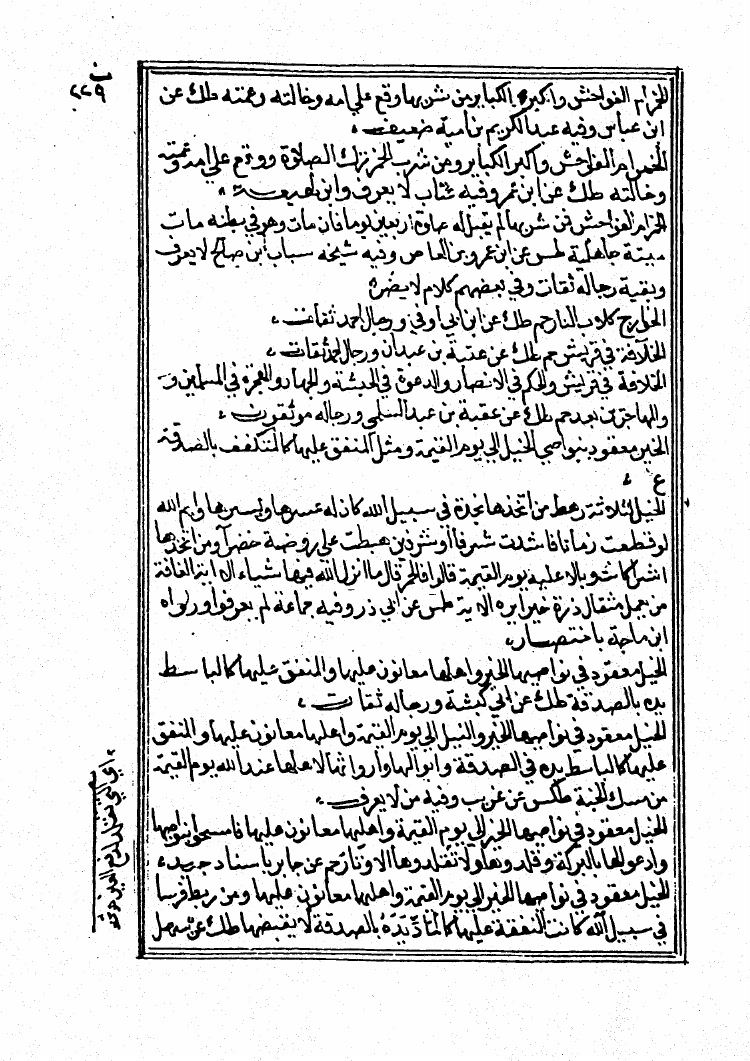 ٢٢٩
الخمر ام الفواحش واكبر الكبائر من شربها وقع علي امه وخالته وعمته طك عن
ابن عباس وفيه عبد الكريم بن امية ضعيف
الخمر ام الفواحش واكبر الكبائر ومن شرب الخمر ترك الصلاة ووقع علي امه وعمته
وخالته طك عن ابن عمرو وفيه عتاب لا يعرف وابن لهيعة
الخمر ام الفواحش فمن شربها لم يقبل له صلوة اربعين يوما فان مات وهو في بطنه مات
ميتة جاهلية طس عن ابن عمرو بن العاص وفيه شيخه سباب بن صالح لا يعرف
وبقية رجاله ثقات وفي بعضهم كلام لا يضره
الخوارج كلاب النار حم طك عن ابن ابي اوفي ورجال احمد ثقات
الخلافة في قريش حم طك عن عتبة بن عبدان ورجال احمد ثقات
الخلافة في قريش والحكم في الانصار والدعوة في الحبشة والجهاد والهجرة في المسلمين و
والمهاجرين بعد حم طك عن عقبة بن عبد السلمي ورجاله موثقون
الخير معقود بنواصي الخيل الي يوم القيمة ومثل المنفق عليها كالمتكفف بالصدقة
ع
الخيل لثلاثة رهط من اتخذها نجدة في سبيل الله كان له عسرها ويسرها وايم الله
لو قطعت زماما فاشتدت شرفا أو شرفين هبطت علي روضة خضرآ ومن اتخذها
اشرا كانت وبالا عليه يوم القيمة قالوا فالحمر قال ما انزل الله فيها شياء الا اية الفاذة
من يعمل مثقال ذرة خيرا يره الاية طس عن ابي ذر وفيه جماعة لم يعرفوا ورواه
ابن ماجة باختصار
الخيل معقود في نواصيها الخير واهلها معانون عليها والمنفق عليها كالباسط
يده بالصدقة طك عن ابي كبشة ورجاله ثقات
الخيل معقود في نواصيها الخير والنيل الي يوم القيمة واهلها معانون عليها والمنفق
عليها كالباسط يده في الصدقة وابوالها وارواثها لاهلها عند الله يوم القيمة
من مسك الجنة طكس عن عريب وفيه من لا يعرف
الخيل معقود في نواصيها الخير الي يوم القيمة واهلها معانون عليها فامسحوا بنواصيها
وادعوا لها بالبركة وقلدوها ولا تقلدوها الاوتار حم عن جابر باسناد جيد
الخيل معقود في نواصيها الخير الي يوم القيمة واهلها معانون عليها ومن ربط فرسا
في سبيل الله كانت النفقة عليها كالماد يده بالصدقة لا يقبضها طك عن سهل